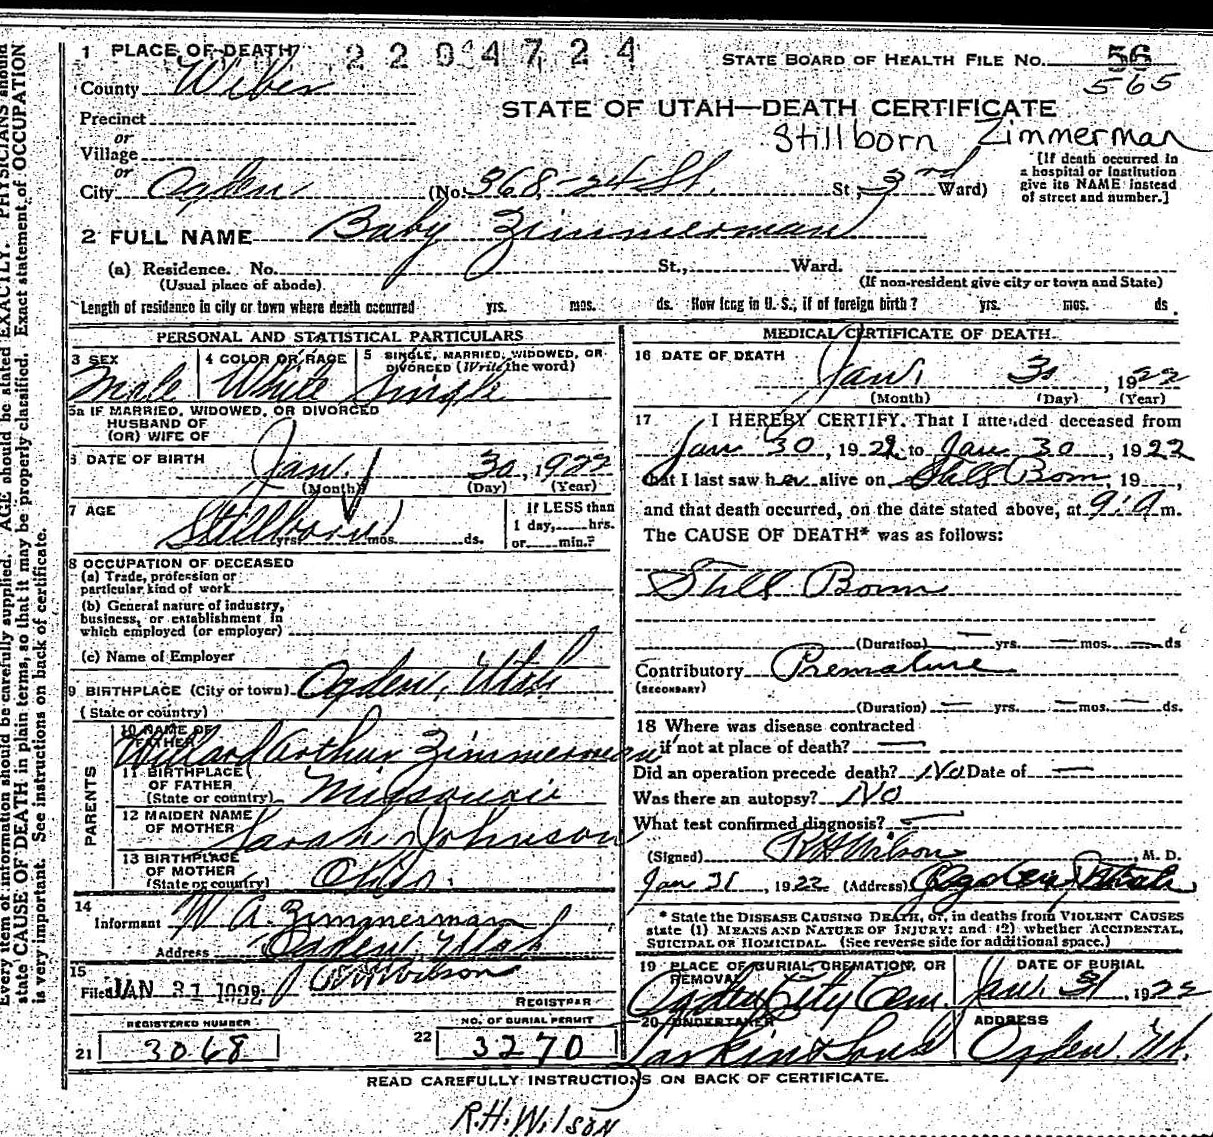 Every item of information should be carefully supplied. AGE should be stated EXACTLY. PHYSICIANS should
state CAUSE OF DEATH in plain terms, so that it may be properly classified. Exact statement of OCCUPATION
is very important. See instructions on back of certificate.
1 PLACE OF DEATH
2204724
STATE BOARD OF HEALTH FILE No. 56
565
County Weber
STATE OF UTAH—DEATH CERTIFICATE
Precinct
Stillborn Zimmerman
or
Village
or
City Ogden (No. 368-24 St. St; 3rd Ward)
[If death occurred in
a hospital or institution
give its NAME instead
of street and number.]
2 FULL NAME Baby Zimmerman
(a) Residence. No. St., Ward.
(Usual place of abode) (If non-resident give city or town and State)
Length of residence in city or town where death occurred yrs. mos. ds. How long in U. S., if of foreign birth? yrs. mos. ds.
PERSONAL AND STATISTICAL PARTICULARS
3 SEX
Male
4 COLOR OR RACE
White
5 SINGLE, MARRIED, WIDOWED, OR
DIVORCED (Write the word)
Single
5a IF MARRIED, WIDOWED, OR DIVORCED
HUSBAND OF
(OR) WIFE OF
6 DATE OF BIRTH Jan. 30, 1922
(Month) (Day) (Year)
7 AGE
Stillborn
yrs. mos. ds.
If LESS than
1 day, hrs.
or min.?
8 OCCUPATION OF DECEASED
(a) Trade, profession or
particular kind of work
(b) General nature of industry,
business, or establishment in
which employed (or employer)
(c) Name of Employer
9 BIRTHPLACE (City or town) Ogden, Utah
(State or country)
PARENTS
10 NAME OF
FATHER
Willard Arthur Zimmerman
11 BIRTHPLACE
OF FATHER
(State or country) Missouri
12 MAIDEN NAME
OF MOTHER Sarah Johnson
13 BIRTHPLACE
OF MOTHER
(State or country) Ohio.
14
Informant W A. Zimmerman
Address Ogden, Utah
15
Filed JAN 31 1922 Wilson
REGISTRAR
REGISTERED NUMBER
21 3068
NO. OF BURIAL PERMIT
22 3270
MEDICAL CERTIFICATE OF DEATH
16 DATE OF DEATH
Jan. 30, 1922
(Month) (Day) (Year)
17 I HEREBY CERTIFY. That I attended deceased from
Jan 30, 1922 to Jan. 30, 1922
that I last saw her alive on Still Born, 19 ,
and that death occurred, on the date stated above, at 9: a m.
The CAUSE OF DEATH* was as follows:
Still Born
(Duration) — yrs. — mos. — ds
Contributory Premature
(SECONDARY)
(Duration) — yrs. — mos. — ds.
18 Where was disease contracted
if not at place of death? —
Did an operation precede death? No Date of —
Was there an autopsy? No
What test confirmed diagnosis? —
(Signed) R H Wilson, M. D.
Jan 31, 1922 (Address) Ogden, Utah
* State the DISEASE CAUSING DEATH, or, in deaths from VIOLENT CAUSES
state (1) MEANS AND NATURE OF INJURY; and (2) whether ACCIDENTAL,
SUICIDAL OR HOMICIDAL. (See reverse side for additional space.)
19 PLACE OF BURIAL, CREMATION, OR
REMOVAL
Ogden City Cem.
DATE OF BURIAL
Jan. 31, 1922
20 UNDERTAKER
Larkin & Sons
ADDRESS
Ogden. Ut.
READ CAREFULLY INSTRUCTIONS ON BACK OF CERTIFICATE.
R.H. Wilson